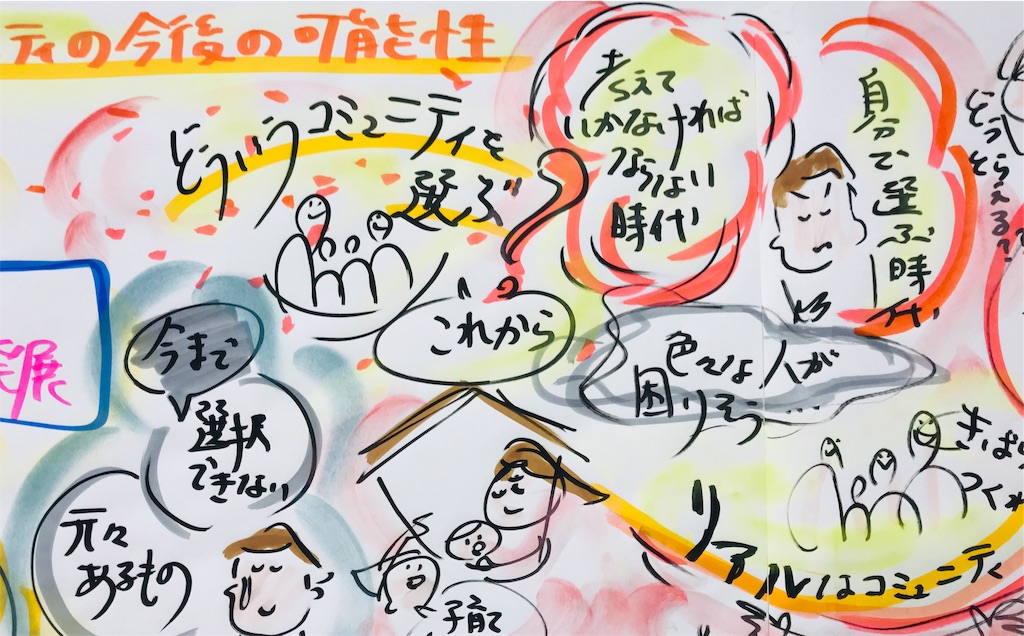 ティの今後の可能性
どういうコミュニティを
選ぶ?
考えて
いかなければ
ならない
時代
自分で選ぶ時代
どう
とらえる?
これから
今まで
選択
できない
元々
あるもの
色々な人が
困りそう…
展
子育て
リアルはコミュニティ
きば
つくれ